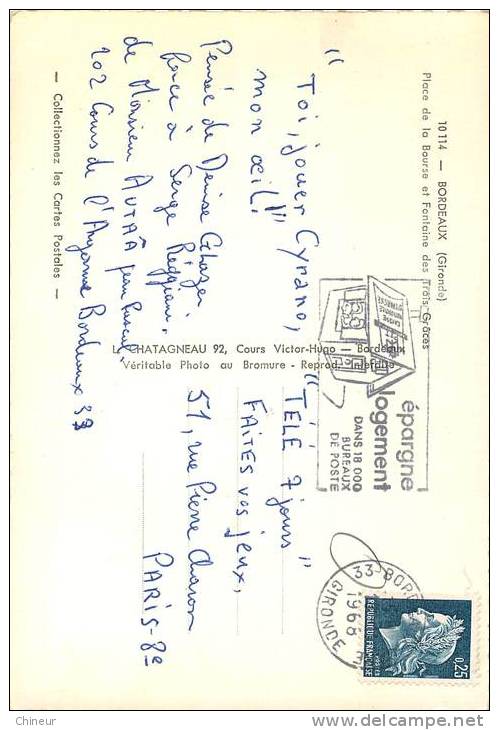 10114 — BORDEAUX (Gironde)
Place de la Bourse et Fontaine des Trois Grâces
" Toi, jouer Cyrano,
mon œil! "
Pensée de Denise Glaser
face à Serge Reggiani,
de Monsieur AUTAÀ Jean Pascal
202 Cours de l'Argonne Bordeaux 33
— Collectionnez les Cartes Postales —
CHATAGNEAU 92, Cours Victor-Hugo — Bordeaux
Véritable Photo au Bromure - Reprod. Interdite
" TÉLÉ 7 jours "
FAITES vos jeux,
51, rue Pierre Charron
PARIS-8e
CAISSE
NATIONALE
D'EPARGNE
épargne
logement
DANS 18 000
BUREAUX
DE POSTE
33-BORD
1968
GIRONDE
REPUBLIQUE FRANÇAISE
0,25
Chineur
www.delcampe.net